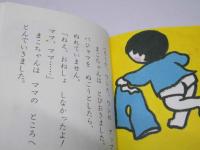 まこちゃんは とびおきました。
パジャマを ぬごうとしたら、
ぬれていません。
「ねえ、おねしょ しなかったよ!
ママ、ママ……」
まこちゃんは ママの ところへ
とんでいきました。